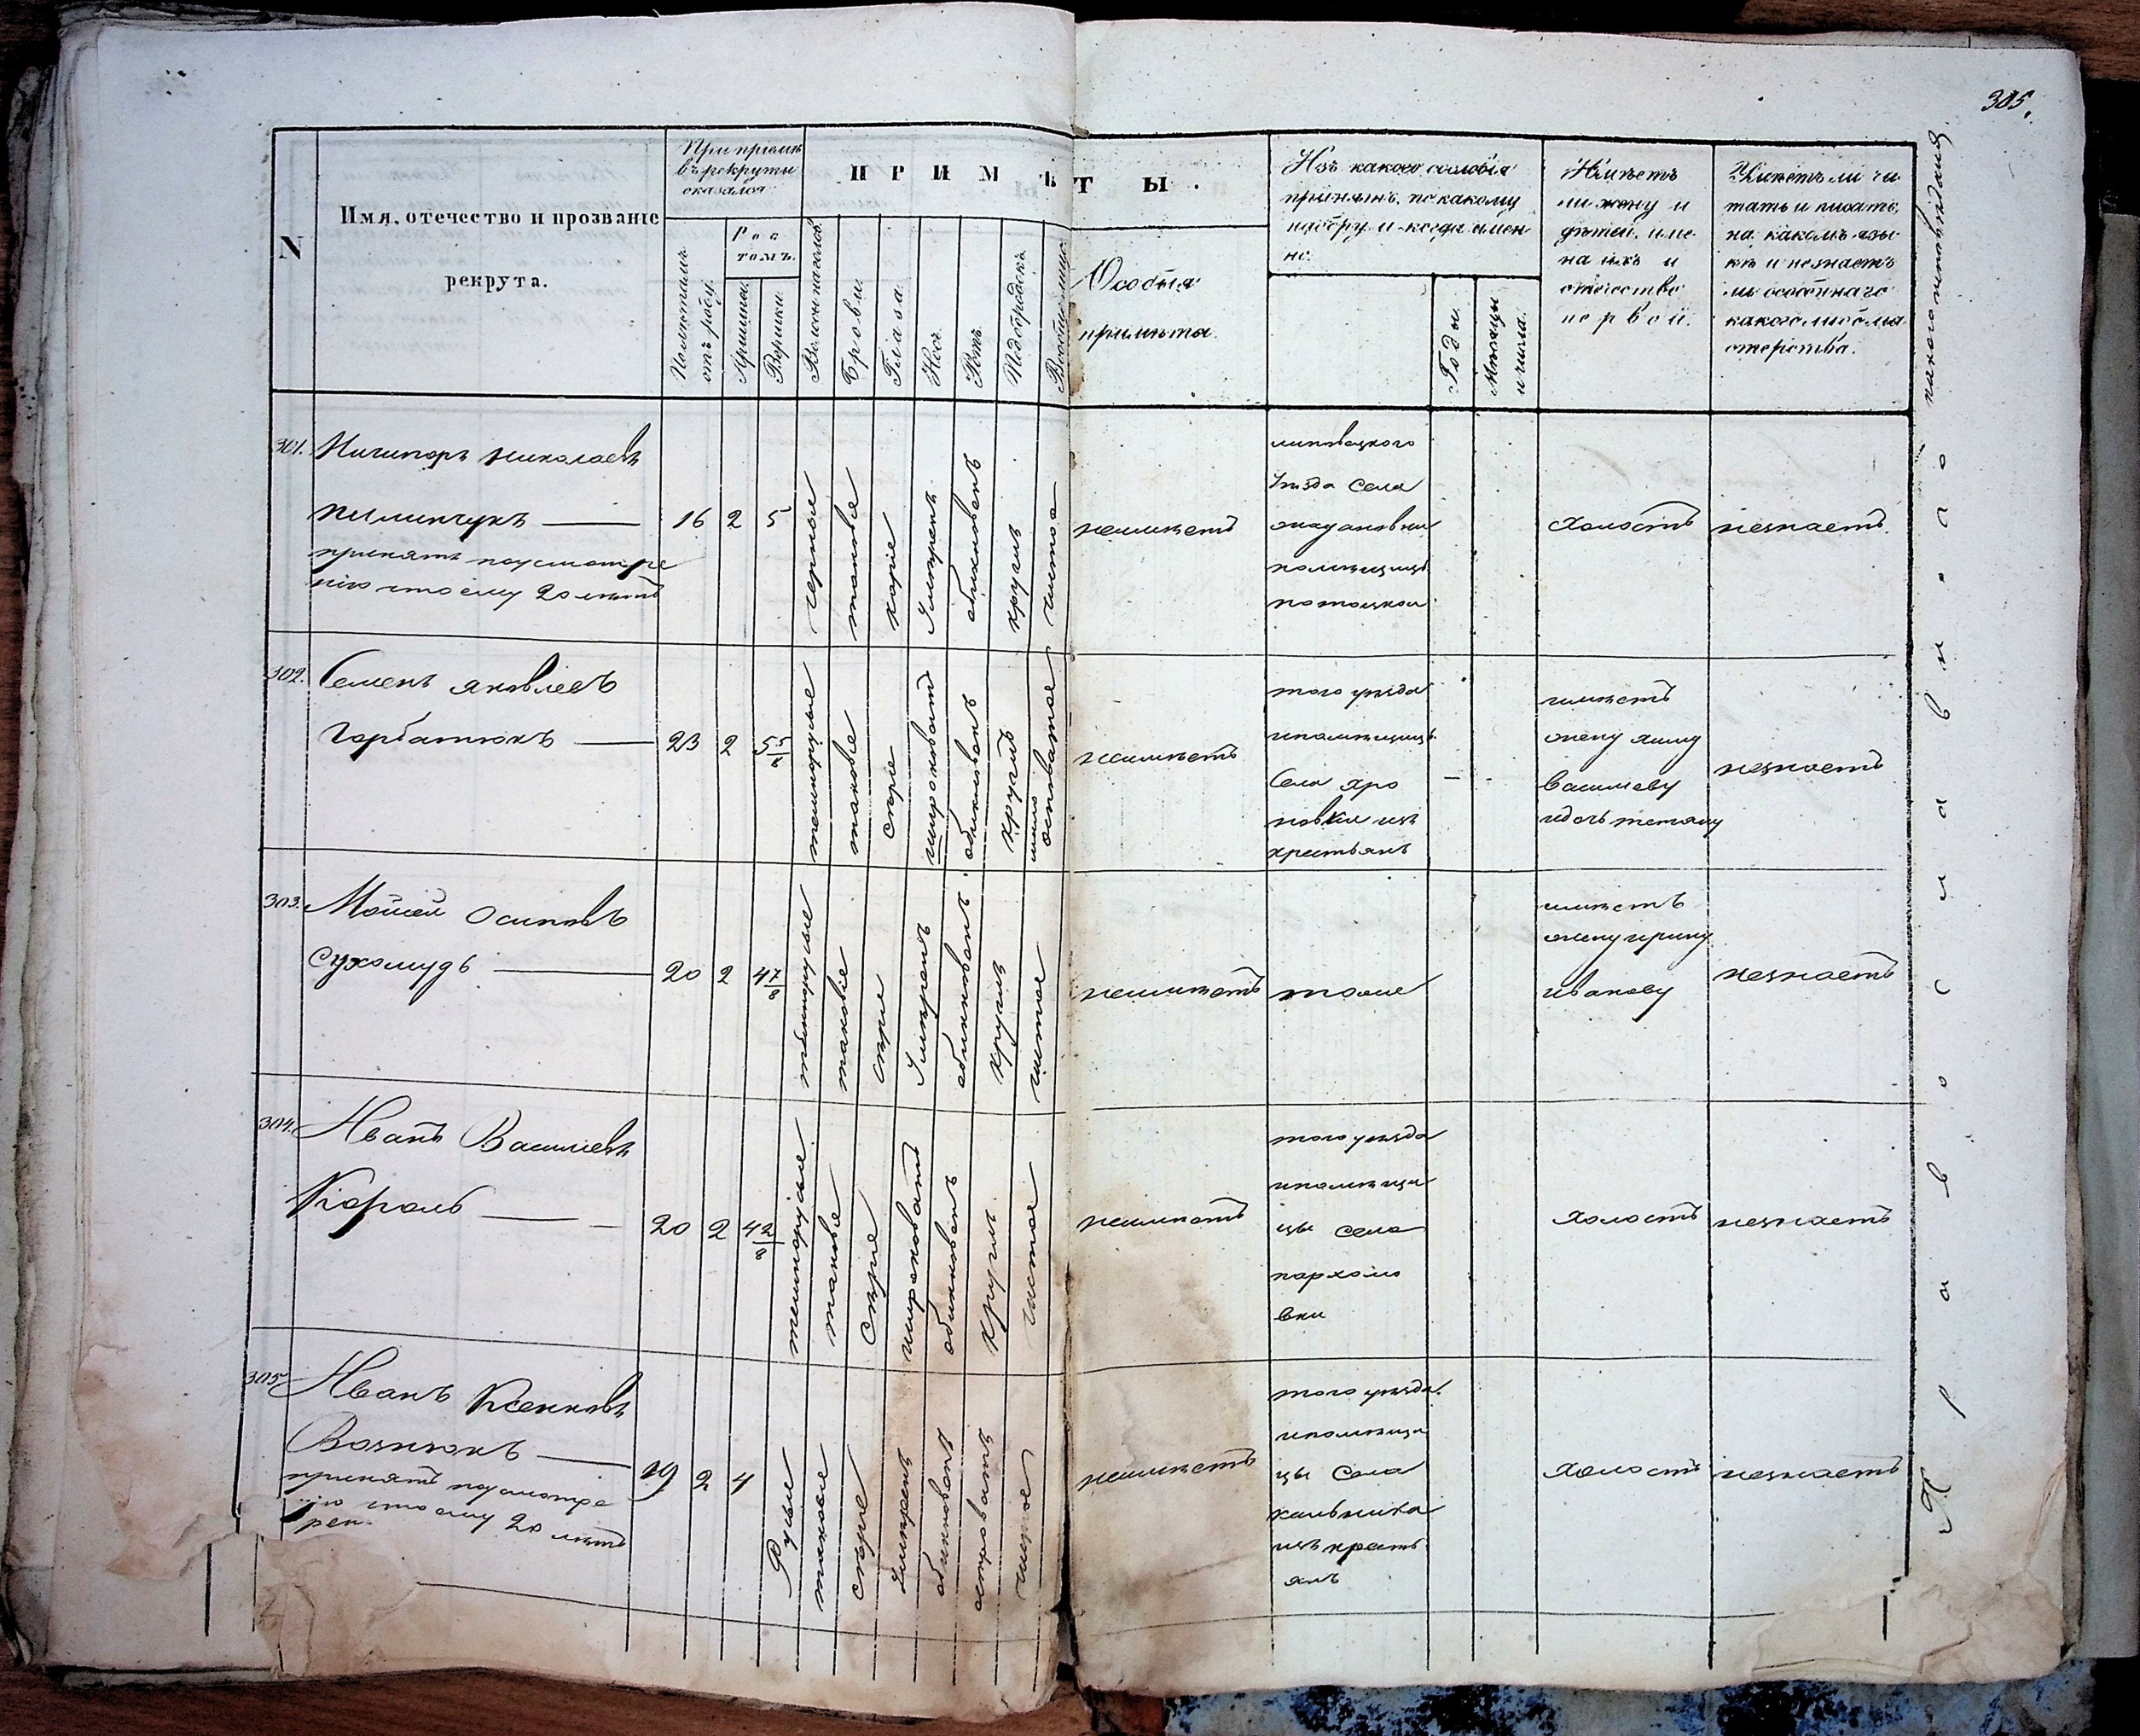 305.
N
Имя, отечество и прозваніе
рекрута.
При пріемѣ
въ рекруты
оказался
Полѣтамъ
отъ роду
Рос
томъ.
Аршины
Вершки
ПРИМѢТЫ.
Волосы на головѣ
Брови
Глаза
Носъ
Ротъ
Подбородокъ
Вообще лицо
Особыя
примѣты
Изъ какого сословія
принятъ, по какому
набору и когда имен
но.
Годы
Мѣсяцы
и числа.
Имѣетъ
ли жену и
дѣтей, име
на ихъ и
отечество
первой.
Умѣетъ ли чи
тать и писать,
на какомъ язы
кѣ и не знаетъ
ли особеннаго
какого либо ма
стерства.
какого исповѣданія
Православнаго
301.
Ничипоръ Николаевъ
Пилипчукъ
принятъ по усмотре
нію что ему 20 лѣтъ
16
2
5
черные
таковые
каріе
Умѣренъ
обикновенъ
круглъ
чистое
неимѣетъ
липовецкого
уѣзда села
жадановки
помѣщицы
потоцкой
холостъ
незнаетъ.
302.
Семенъ Яковлевъ
Горбатюкъ
23
2
5 5/8
темнорусые
таковые
сѣрые
широковатъ
обикновенъ
круглъ
чисто
осповатое
неимѣетъ
того уѣзда
ипомѣщицы
Села Яро
повки изъ
крестьянъ
имѣетъ
жену
Василеву
идочь татяну
незнаетъ
303.
Мойсей Осиповъ
Сухомудъ
20
2
4 7/8
темнорусые
таковые
сѣрые
Умѣренъ
обикновенъ
круглъ
чистое
неимѣетъ
тоже
имѣетъ
жену ирину
иванову
незнаетъ
304.
Иванъ Василіевъ
Король
20
2
4 2/8
темнорусые
таковые
Сѣрые
широковатъ
обикновенъ
круглъ
чистое
неимѣетъ
того уѣзда
ипомѣщи
цы села
пархомо
вки
холостъ
незнаетъ
305.
Иванъ Ксенковъ
Вознюкъ
принятъ по усмотре
нію что ему 20 лѣтъ
19
2
4
Русые
таковые
сѣрые
Умѣренъ
обикновенъ
островатъ
чистое
неимѣетъ
того уѣзда
ипомѣщи
цы Села
кальника
изъ кресть
янъ
холостъ
незнаетъ